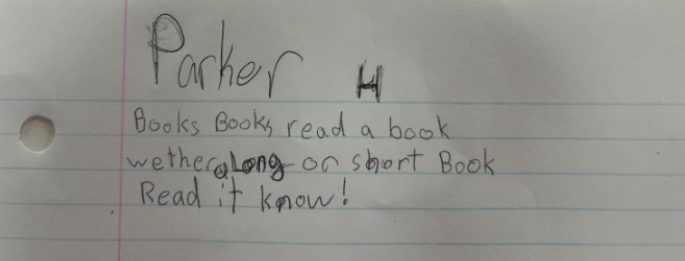 Parker H
Books Books read a book
wether a Long or short Book
Read it know!